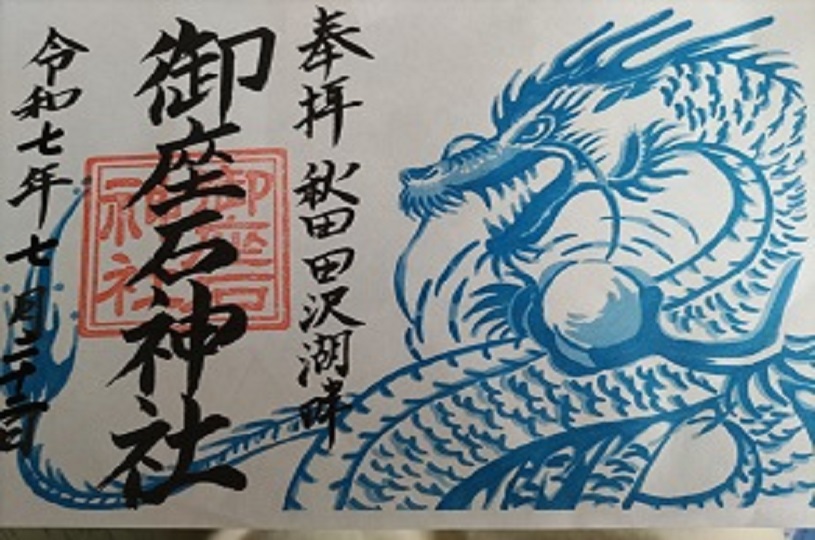 奉拝 秋田田沢湖畔
御座石神社
御座石
神社
令和七年 七月二十二日